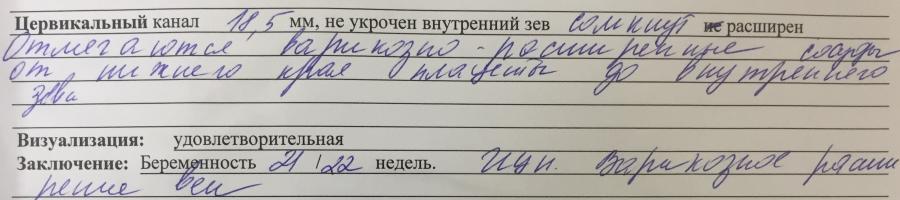 Цервикальный канал 18,5 мм, не укрочен внутренний зев сомкнут не расширен
Отмечаются варикозно-расширенные сосуды
от нижнего края плаценты до внутреннего
зева
Визуализация: удовлетворительная
Заключение: Беременность 21/22 недель. Варикозное расши
рение вен